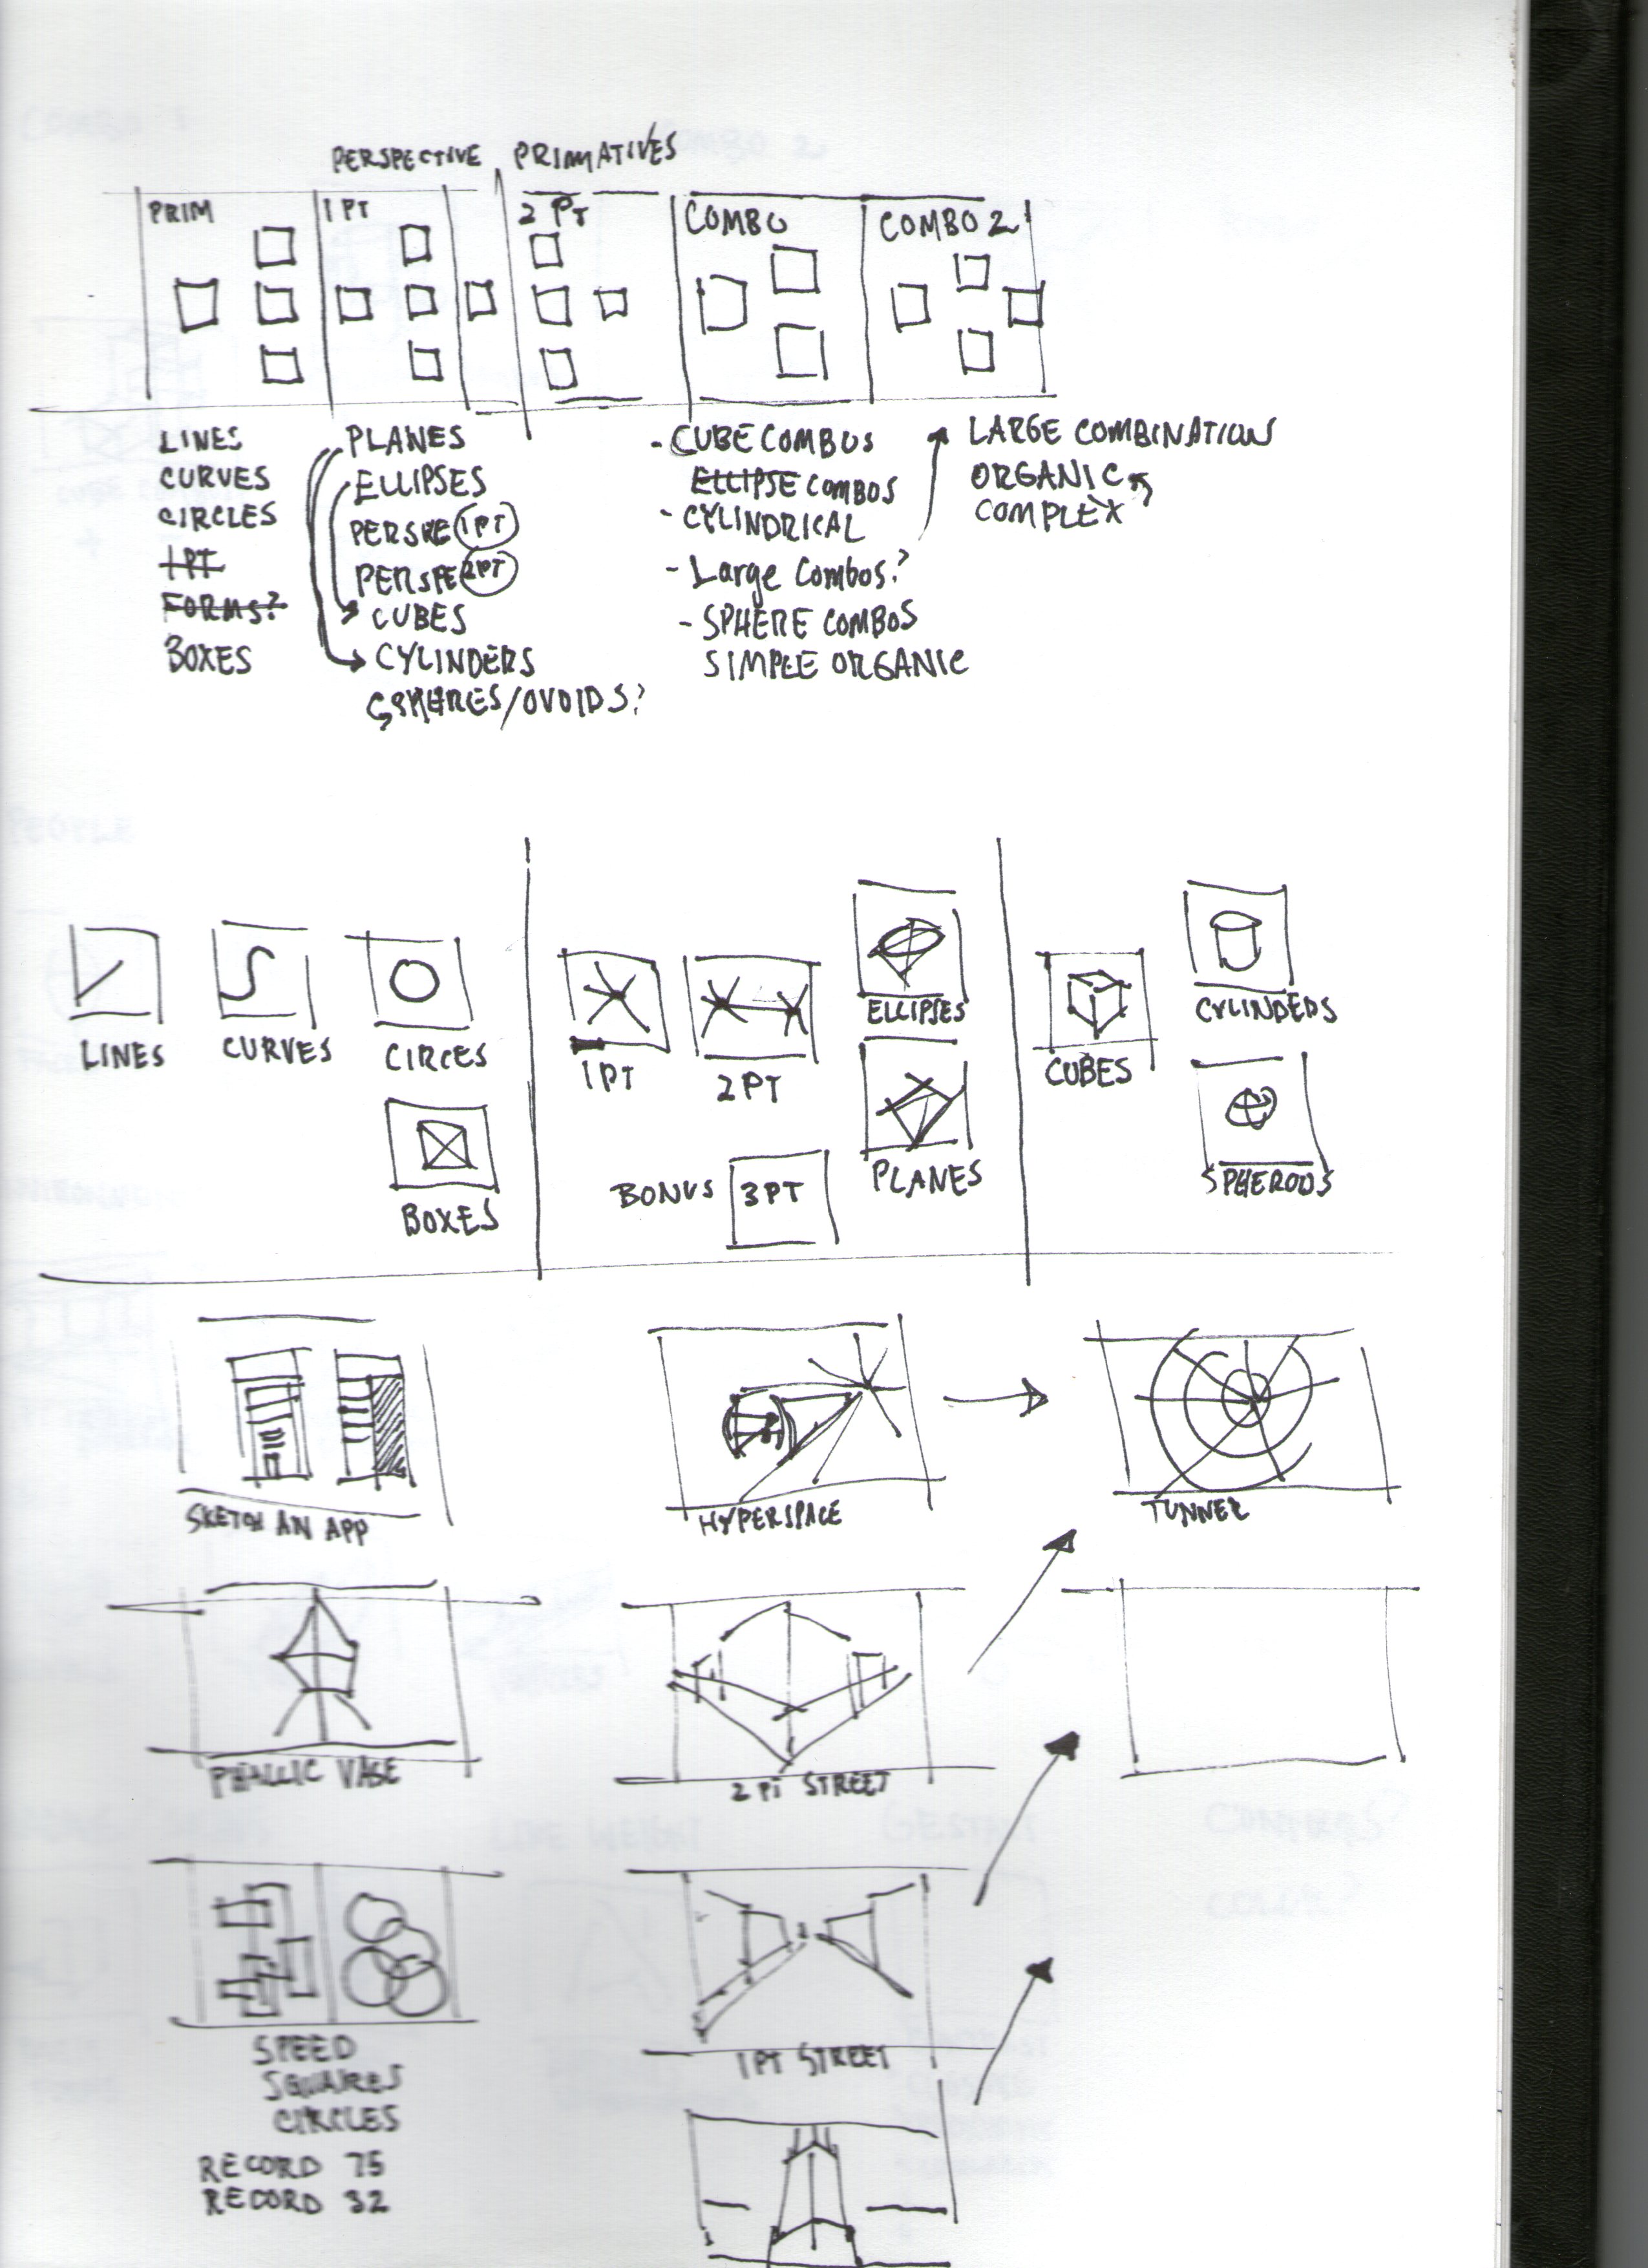 PERSPECTIVE PRIMATIVES
PRIM
1 PT
2 PT
COMBO
COMBO 2
LINES
CURVES
CIRCLES
1PT
FORMS?
BOXES
PLANES
ELLIPSES
PERSPE 1PT
PERSPE 2PT
CUBES
CYLINDERS
SPHERES/OVOIDS?
- CUBE COMBOS
ELLIPSE COMBOS
- CYLINDRICAL
- Large Combos?
- SPHERE COMBOS
SIMPLE ORGANIC
LARGE COMBINATION
ORGANIC
COMPLEX
LINES
CURVES
CIRCES
BOXES
1PT
2PT
ELLIPSES
PLANES
BONUS 3PT
CUBES
CYLINDERS
SPHERODS
SKETCH AN APP
HYPERSPACE
TUNNER
PHALLIC VASE
2 PT STREET
SPEED
SQUARES
CIRCLES
RECORD 75
RECORD 32
1PT STREET
PEOPLE
COMBO 2
LINE WEIGHT